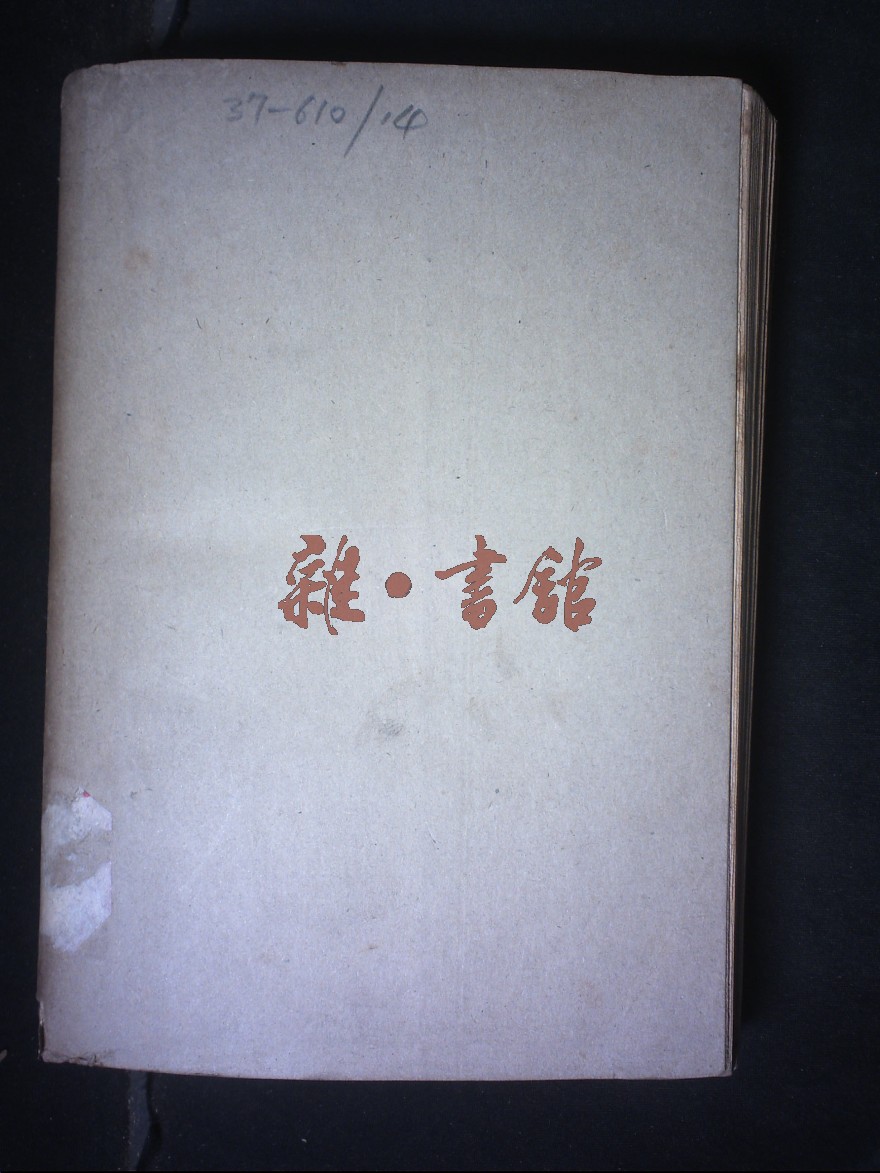 37-610/14
雜·書館